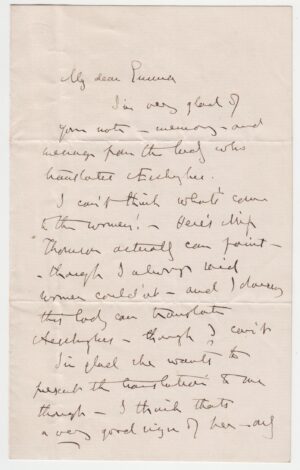 My dear Emma
I'm very glad of
your note – memory – and
message from the lady who
translates Æschylus.
I can't think what's come
to the women! – Here's Miss
Thomson actually can paint –
– though I always said
women couldn't – and I daresay
this lady can translate
Aeschylus – though I can't
I'm glad she wants to
present the translation to me
though – I think that's
a very good sign of her – and